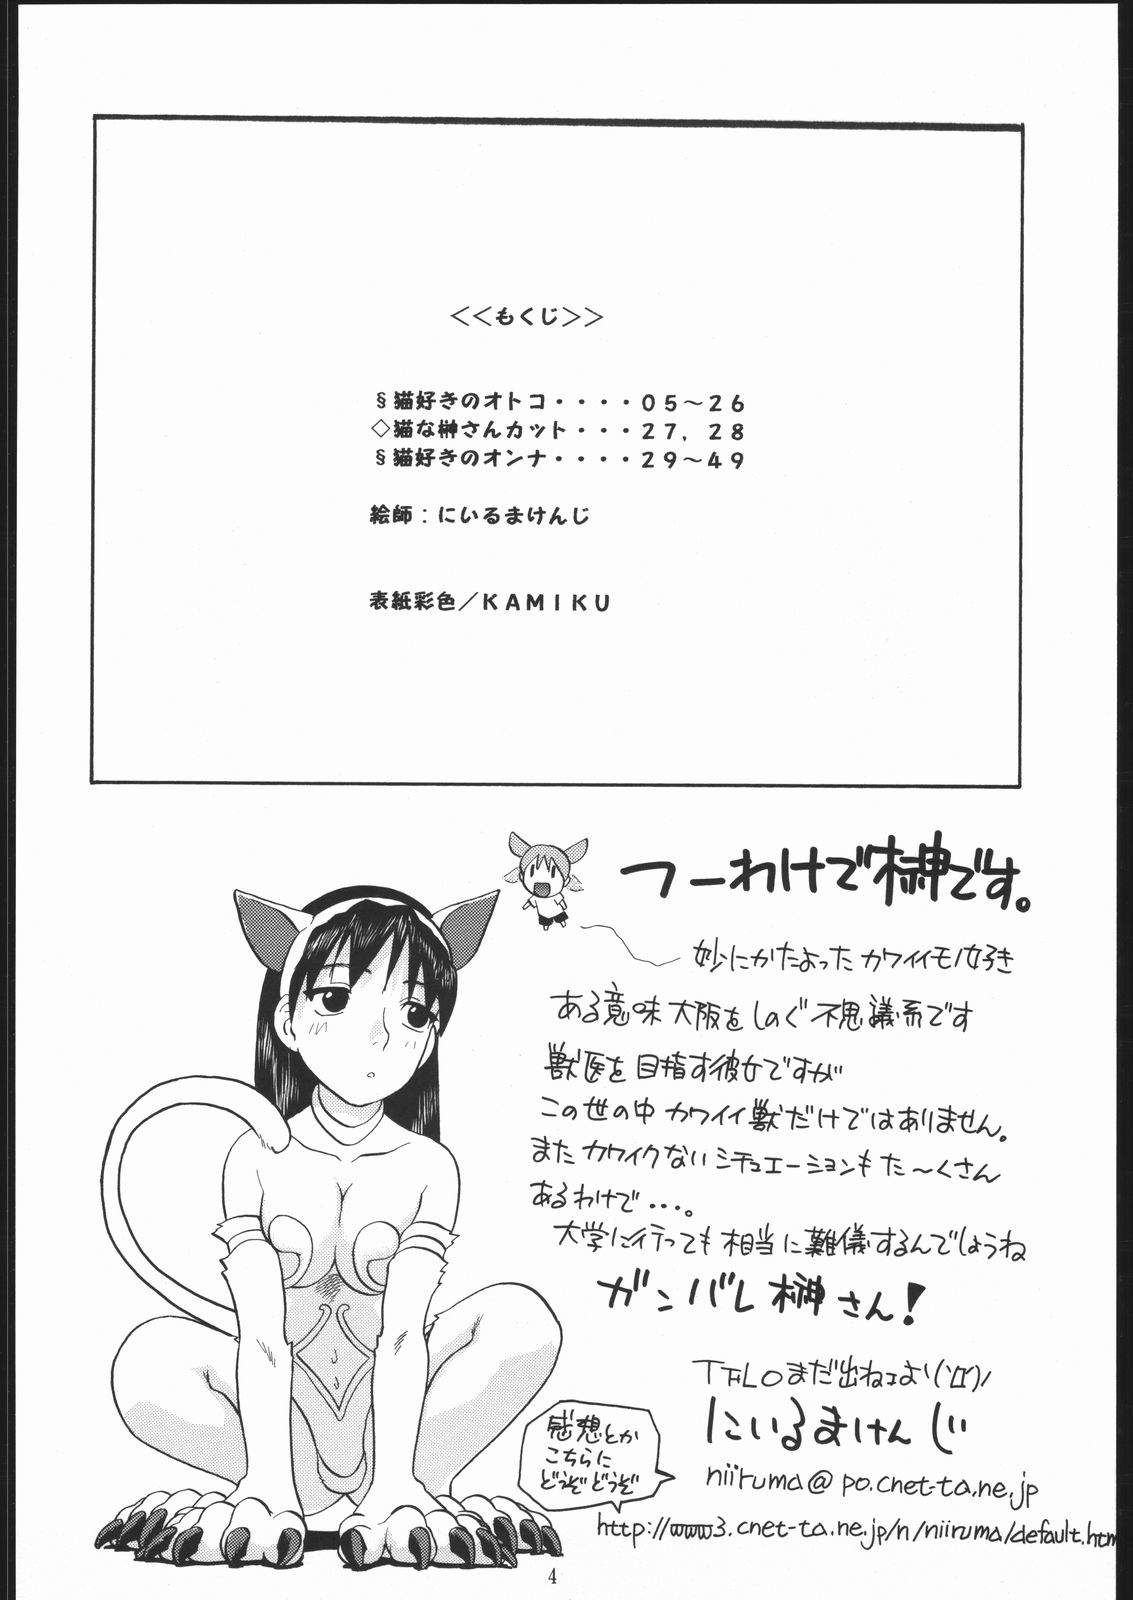 <<もくじ>>
§猫好きのオトコ・・・・05～26
◇猫な榊さんカット・・・27,28
§猫好きのオンナ・・・・29～49
絵師：にいるまけんじ
表紙彩色／KAMIKU
つーわけで榊です。
妙にかたよったカワイイモノ好き
ある意味大阪をしのぐ不思議系です
獣医を目指す彼女ですが
この世の中カワイイ獣だけではありません。
またカワイクないシチュエーションもた～くさん
あるわけで…。
大学に行っても相当に難儀するんでしょうね
ガンバレ榊さん!
まだ出ねェよ
にいるまけんじ
感想とか
こちらに
どうぞどうぞ
niiruma@po.cnet-ta.ne.jp
http://www3.cnet-ta.ne.jp/n/niiruma/default.htm
4